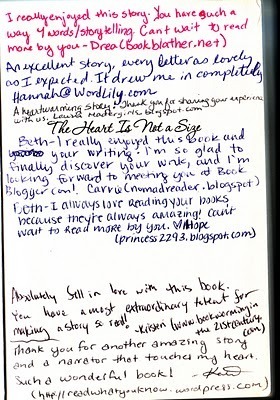 I really enjoyed this story. You have such a
way w/ words/storytelling. Can't wait to read
more by you - Drea (Book.blather.net)
An excellent story, every letter as lovely
as I expected. It drew me in completely
Hannah@WordLily.com
A heartwarming story. Thank you for sharing your experience
with us. Laura
The Heart Is Not a Size
Beth- I really enjoyed this book and
your writing. I'm so glad to
finally discover your work, and I'm
looking forward to meeting you at Book
Blogger Con!. Carrie (nomadreader.blogspot)
Beth- I always love reading your books
because they're always amazing! Can't
wait to read more by you. ♡ Hope
(princess2293.blogspot.com)
Absolutely fell in love with this book.
You have a most extraordinary talent for
making a story so real! - Kristen (www.bookworming in
the 21stcentury.
com)
Thank you for another amazing story
and a narrator that touches my heart.
Such a wonderful book! -
(http://readwhatyouknow.wordpress.com)